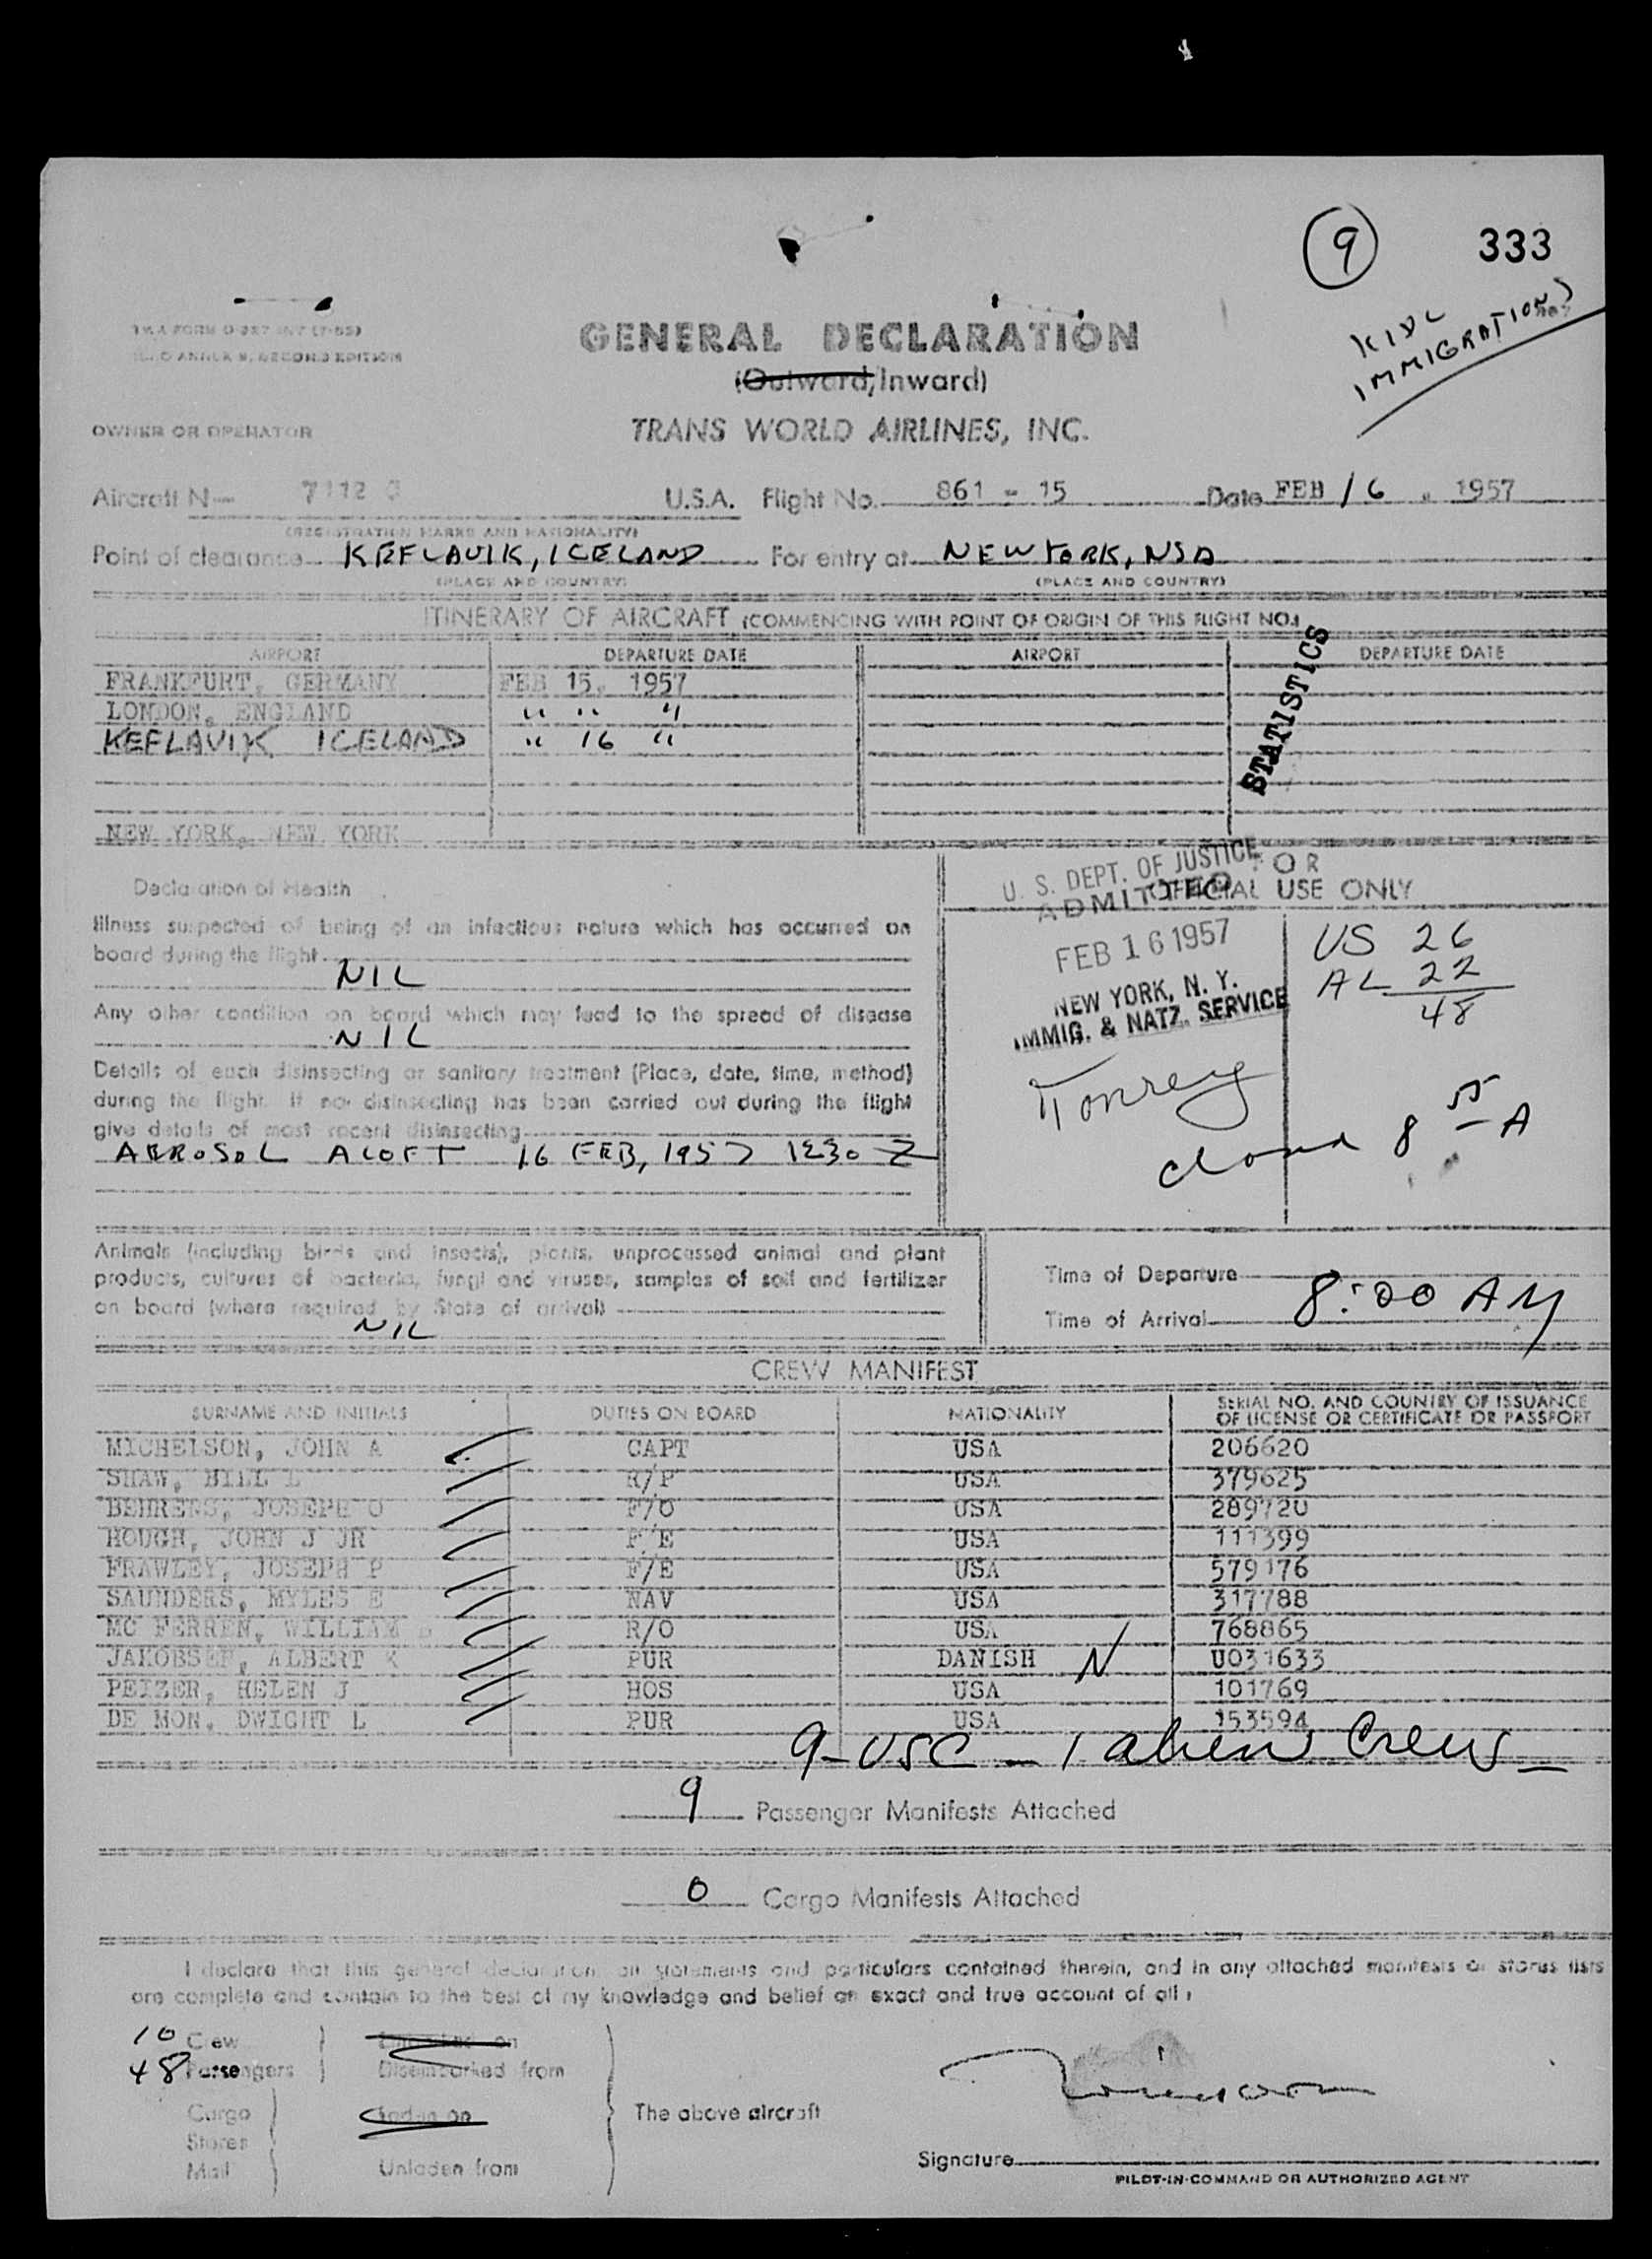 9 333
KIDL
IMMIGRATION
TWA FORM O-287 INT (7-55)
ANNEX 9, SECOND EDITION
GENERAL DECLARATION
(Outward/Inward)
OWNER OR OPERATOR TRANS WORLD AIRLINES, INC.
Aircraft N— 7112 C U.S.A. Flight No. 861 - 15 Date FEB 16, 1957
(REGISTRATION MARKS AND NATIONALITY)
Point of clearance KEFLAVIK, ICELAND For entry at NEW YORK, NSA
(PLACE AND COUNTRY) (PLACE AND COUNTRY)
ITINERARY OF AIRCRAFT (COMMENCING WITH POINT OF ORIGIN OF THIS FLIGHT NO.)
AIRPORT DEPARTURE DATE AIRPORT DEPARTURE DATE
FRANKFURT, GERMANY FEB 15, 1957
LONDON, ENGLAND " " "
KEFLAVIK ICELAND " 16 "
STATISTICS
NEW YORK, NEW YORK
Declaration of Health
FOR
OFFICIAL USE ONLY
U. S. DEPT. OF JUSTICE
ADMITTED
FEB 16 1957
NEW YORK, N. Y.
IMMIG. & NATZ. SERVICE
US 26
AL 22
48
8 55 A
Illness suspected of being of an infectious nature which has occurred on
board during the flight
NIL
Any other condition on board which may lead to the spread of disease
NIL
Details of each disinsecting or sanitary treatment (Place, date, time, method)
during the flight. If no disinsecting has been carried out during the flight
give details of most recent disinsecting
AEROSOL ALOFT 16 FEB, 1957 1230 Z
Animals (including birds and insects), plants, unprocessed animal and plant
products, cultures of bacteria, fungi and viruses, samples of soil and fertilizer
on board (where required by State of arrival)
NIL
Time of Departure
Time of Arrival 8:00 AM
CREW MANIFEST
SURNAME AND INITIALS DUTIES ON BOARD NATIONALITY SERIAL NO. AND COUNTRY OF ISSUANCE
OF LICENSE OR CERTIFICATE OR PASSPORT
MICHELSON, JOHN A CAPT USA 206620
SHAW, BILL L R/P USA 379625
BEHRENS, JOSEPH O F/O USA 289720
HOUGH, JOHN J JR F/E USA 111399
FRAWLEY, JOSEPH P F/E USA 579176
SAUNDERS, MYLES E NAV USA 317788
MC FERREN, WILLIAM R/O USA 768865
JAKOBSEN, ALBERT K PUR DANISH N U031633
PEIZER, HELEN J HOS USA 101769
DE MON, DWIGHT L PUR USA 153594
9-USC — 1 alien Crew
9 Passenger Manifests Attached
0 Cargo Manifests Attached
I declare that this general declaration, all statements and particulars contained therein, and in any attached manifests or stores lists
are complete and contain to the best of my knowledge and belief an exact and true account of all:
10 Crew
48 Passengers
Disembarked from
Cargo Laden on
Stores
Mail Unladen from
The above aircraft
Signature
PILOT-IN-COMMAND OR AUTHORIZED AGENT